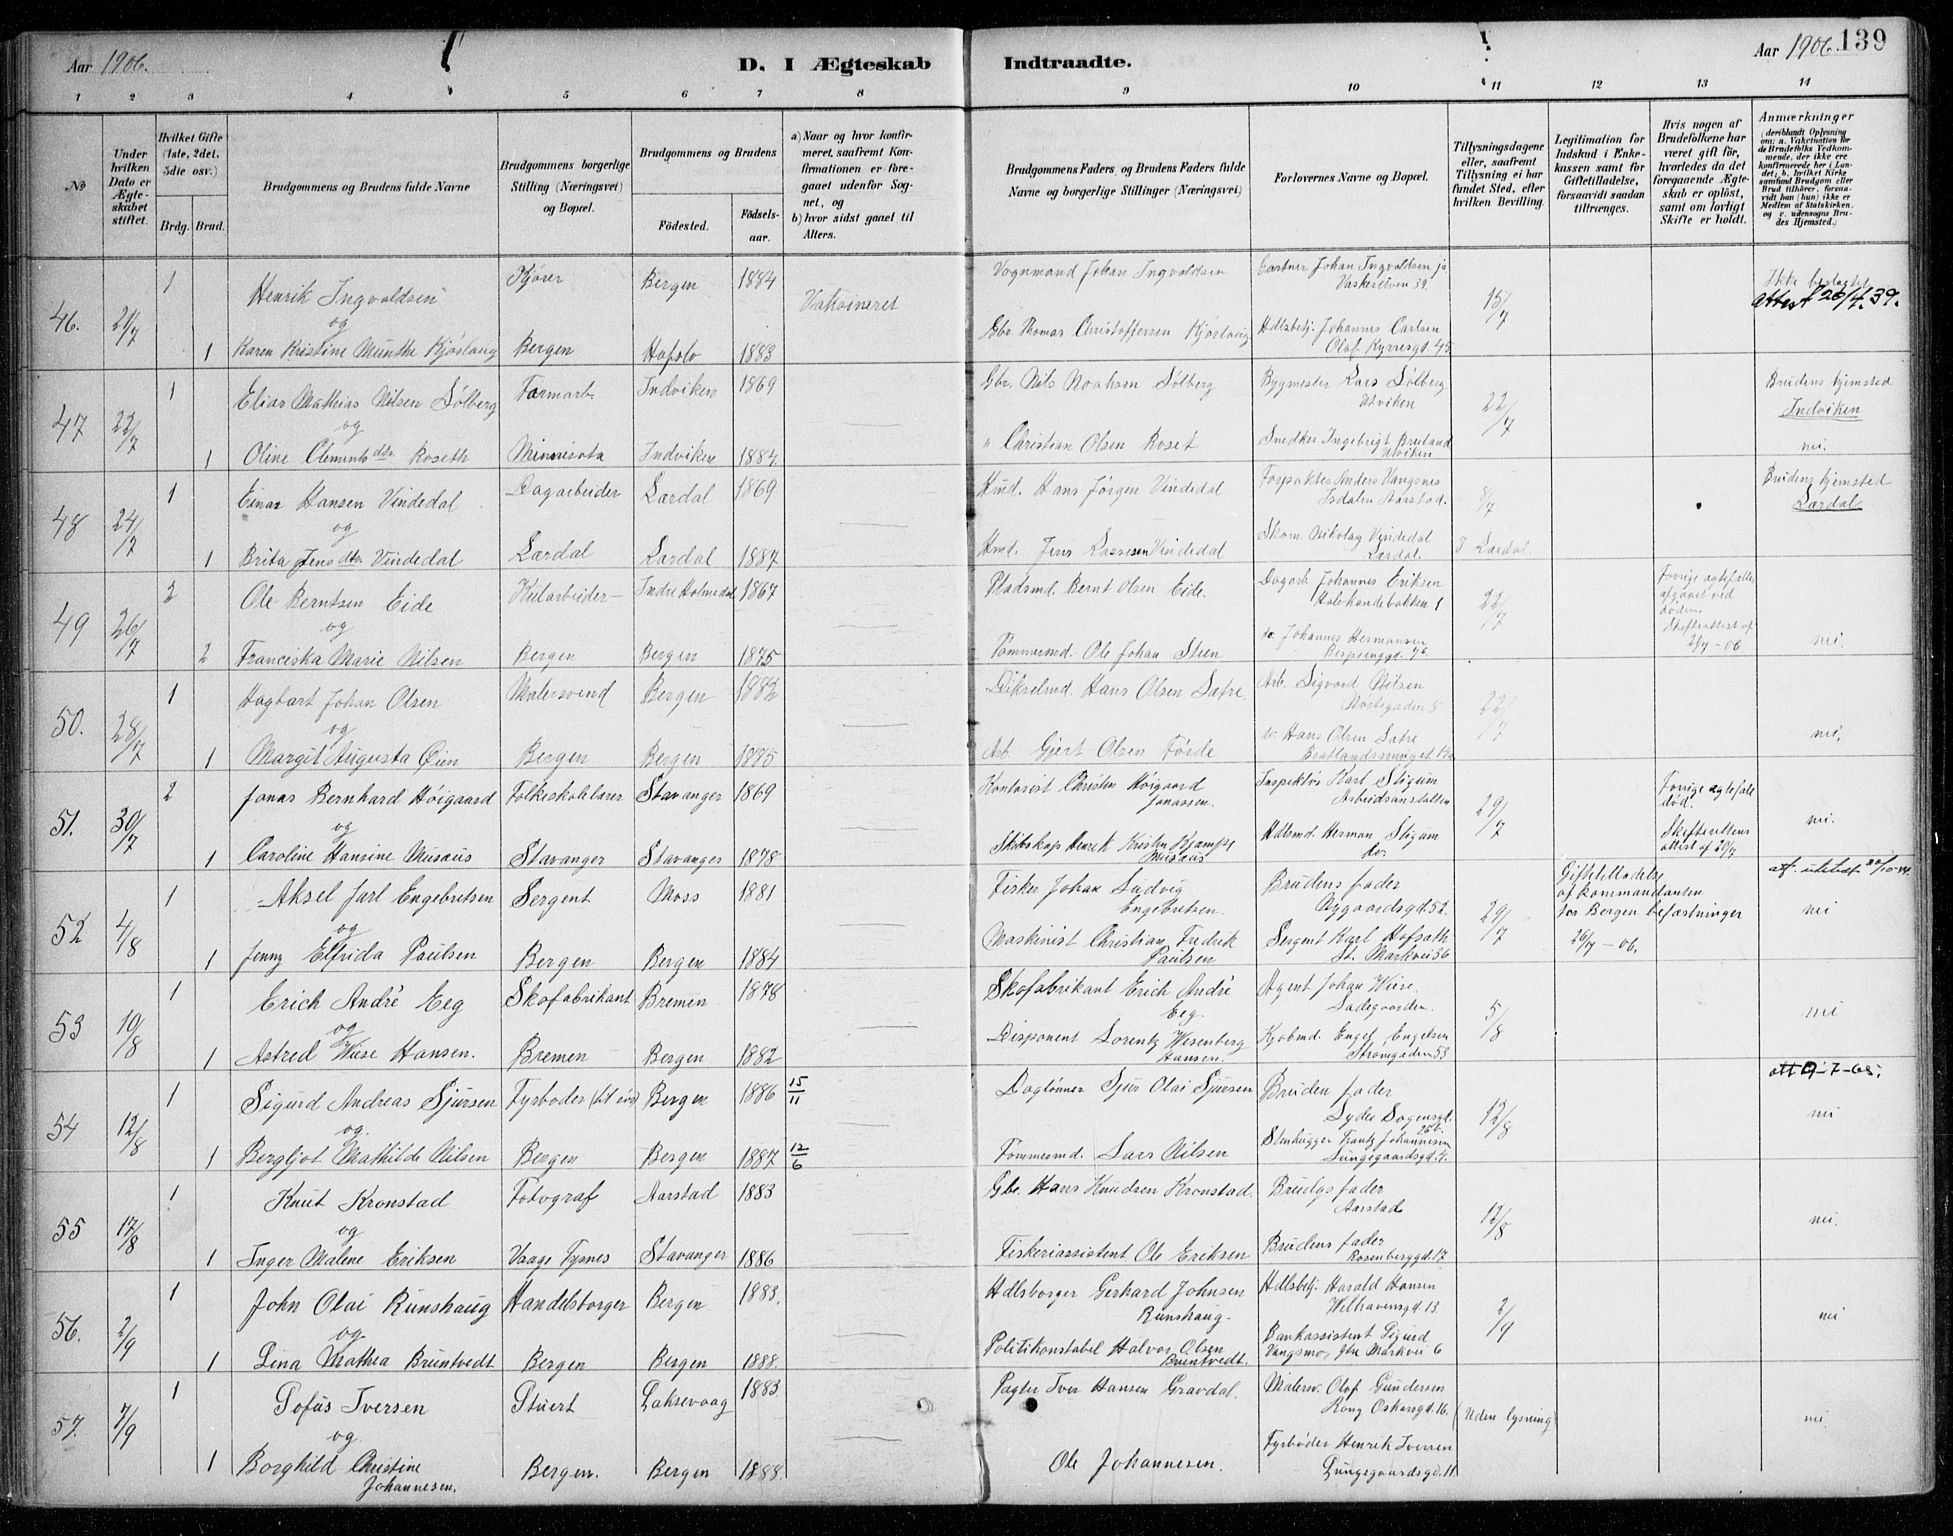 Aar 1906.
D. I Ægteskab Indtraadte.
Aar 1906. 139
1 2 3 4 5 6 7 8 9 10 11 12 13 14
No
Under hvilken Dato er Ægteskabet stiftet.
Hvilket Gifte (1ste, 2det, 3die osv.)
Brdg. Brud.
Brudgommens og Brudens fulde Navne
Brudgommens borgerlige Stilling (Næringsvei) og Bopæl.
Brudgommens og Brudens
Fødested. Fødselsaar.
a) Naar og hvor konfirmeret, saafremt Konfirmationen er foregaaet udenfor Sognet, og
b) hvor sidst gaaet til Alters.
Brudgommens Faders, og Brudens Faders fulde Navne og borgerlige Stillinger (Næringsvei)
Forlovernes Navne og Bopæl.
Tillysningsdagene eller, saafremt Tillysning ei har fundet Sted, efter hvilken Bevilling.
Legitimation for Indskud i Enkekassen samt for Giftetilladelse, forsaavidt saadan tiltrænges.
Hvis nogen af Brudefolkene har været gift før, hvorledes da det foregaaende Ægteskab er opløst, samt om lovligt Skifte er holdt.
Anmærkninger
(deriblandt Oplysning om: a. Vakcination for de Brudefolks Vedkommende, der ikke ere konfirmerede her i Landet; b. hvilket Kirkesamfund Brudgom eller Brud tilhører, forsaavidt han (hun) ikke er Medlem af Statskirken, og c. udensogns Brudes Hjemsted.)
46. 21/7 1 Henrik Ingvaldsen Kjører Bergen 1884 Vaksineret Vognmand Johan Ingvaldsen Gartner Johan Ingvaldsen jr Vaskerelven 39. 15/7 Ikke beslægtet attest 26/4.39.
og
1 Karen Kristine Munthe Kjøslaug Bergen Hafslo 1883 Gbr. Thomas Christoffersen Kjøslaug Hdlsbetj. Johannes Carlsen Olaf Kyrresgd. 45
47 22/7 1 Elias Mathias Nilsen Sølberg Farmarb. Indviken 1869 Gbr. Nils Noahsen Sølberg Bygmester Lars Sølberg Utviken 22/7 Brudens hjemsted Indviken
og
1 Oline Clements dtr. Roseth Minnisota Indviken 1884. " Christian Olsen Roset Snedker Ingebrigt Breiland Utviken nei.
48 24/7 1 Einar Hansen Vindedal Dagarbeider Lærdal 1869 Gmd. Hans Jørgen Vindedal Forpakter Anders Vangsnes Isdalen Aarstad. 8/7 Brudens hjemsted Lærdal
og
1 Brita Jens dtr. Vindedal Lærdal Lærdal 1887 Gmd. Jens Lassesen Vindedal Skom. Nikolay Vindedal Lærdal. I Lærdal.
49 26/7 2 Ole Berntsen Eide Kularbeider Indre Holmedal 1867 Pladsmd. Bernt Olsen Eide. Dagarb. Johannes Eriksen Kalvhandebakken 1 22/7 Forrige ægtefælle afgaaet ved døden. Skifteattest af 2/7-06
og
2 Franciska Marie Nilsen Bergen Bergen 1875 Tømmermd. Ole Johan Steen do. Johannes Hermansen nei.
50. 28/7 1 Hagbart Johan Olsen Malersvend Bergen 1882 Hans Olsen Sætre. Arb. Sigvard Nilsen 8 22/7
og
1 Margit Augusta Øien Bergen Bergen 1885 Arb. Gjert Olsen Førde do Hans Olsen Sætre nei.
51. 30/7 2 Jonas Bernhard Høigaard Folkeskolelærer Stavanger 1869 Kontorist Christen Høigaard Jonassen. Inspektør Karl Stigum Arbeidsanstalten 29/7 Forrige ægtefælle død. Skifterettens attest af 20/7 nei.
og
1 Caroline Hansine Musæus Stavanger Stavanger 1878 Skibskap. Henrik Kristen Kjampe Musæus Hdlsmd. Herman Stigum do.
52 4/8 1 Aksel Jarl Engebretsen Sergent Moss 1881 Fisker Johan Ludvig Engebretsen. Brudens fader Nygaardsgd. 52. 29/7 Giftetilladelse af kommandanten for Bergen befæstninger 26/7-06. nei
og
1 Jenny Elfrida Paulsen Bergen Bergen 1884 Maskinist Christian Fredrik Paulsen Sergent Karl Hofsæth St. Markvei 56
53 10/8 1 Erich André Eeg Skofabrikant Bremen 1878 Skofabrikant Erich André Eeg. Agent Johan Wiese. Ladegaarden. 5/8 nei
og
1 Astred Wiese Hansen. Bremen Bergen 1882 Disponent Lorentz Wesenberg Hansen. Kjøbmd. Engel Engelsen Strømgaden 53
54 12/8 1 Sigurd Andreas Sjursen Fyrbøder (til sjøs) Bergen 1886 15/11 Daglønner Sjur Olai Sjursen Bruden fader Lyder Sagensgd. 26b. 12/8 att 9-7-65. nei
og
1 Bergljot Mathilde Nilsen Bergen Bergen 1887 12/6 Tømmermd. Lars Nilsen Stenhugger Frantz Johannesen Lungegaardsgd. 4.
55 17/8 1 Knut Kronstad Fotograf Aarstad 1883 Gbr. Hans Knudsen Kronstad. Brudgs fader Aarstad 12/8 nei.
og
1 Inger Malene Eriksen Vaage Tysnes Stavanger 1886 Fiskeriassistent Ole Eriksen Brudens fader Rosenberggd. 17
56. 2/9 1 John Olai Runshaug Handelsborger Bergen 1883. Hdlsborger Gerhard Johnsen Runshaug. Hdlsbetj. Harald Hansen Welhavensgd. 13. 2/9 nei
og
1 Lina Mathea Bruntvedt Bergen Bergen 1888. Politikonstabel Halvor Olsen Bruntvedt. Bankassistent Sigurd Vangsmo, Markvei 6
57. 7/9 1 Sofus Iversen Stuert Laksevaag 1883 Pagter Iver Hansen Gravdal. Malerm. Olaf Gundersen Kong Oskarsgd. 16. (Uden lysning) nei
og
1 Borghild Christine Johannesen. Bergen. Bergen 1888. Ole Johannesen. Fyrbøder Henrik Iversen Lungegaardsgd. 11.